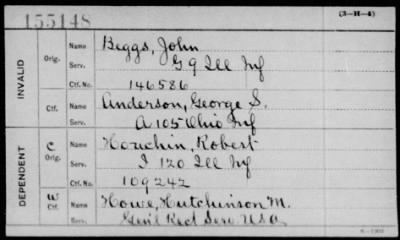 155148
(3-H-4)
INVALID
Orig. Name Beggs, John
Serv. G 9 Ill Inf
Ctf. No. 146586
Ctf. Name Anderson, George S.
Serv. A 105 Ohio Inf
DEPENDENT
C Orig. Name Houchin, Robert
Serv. I 120 Ill Inf
Ctf. No. 109242
W Ctf. Name Howe, Hutchinson M.
Serv. Genl Rect Serv USA